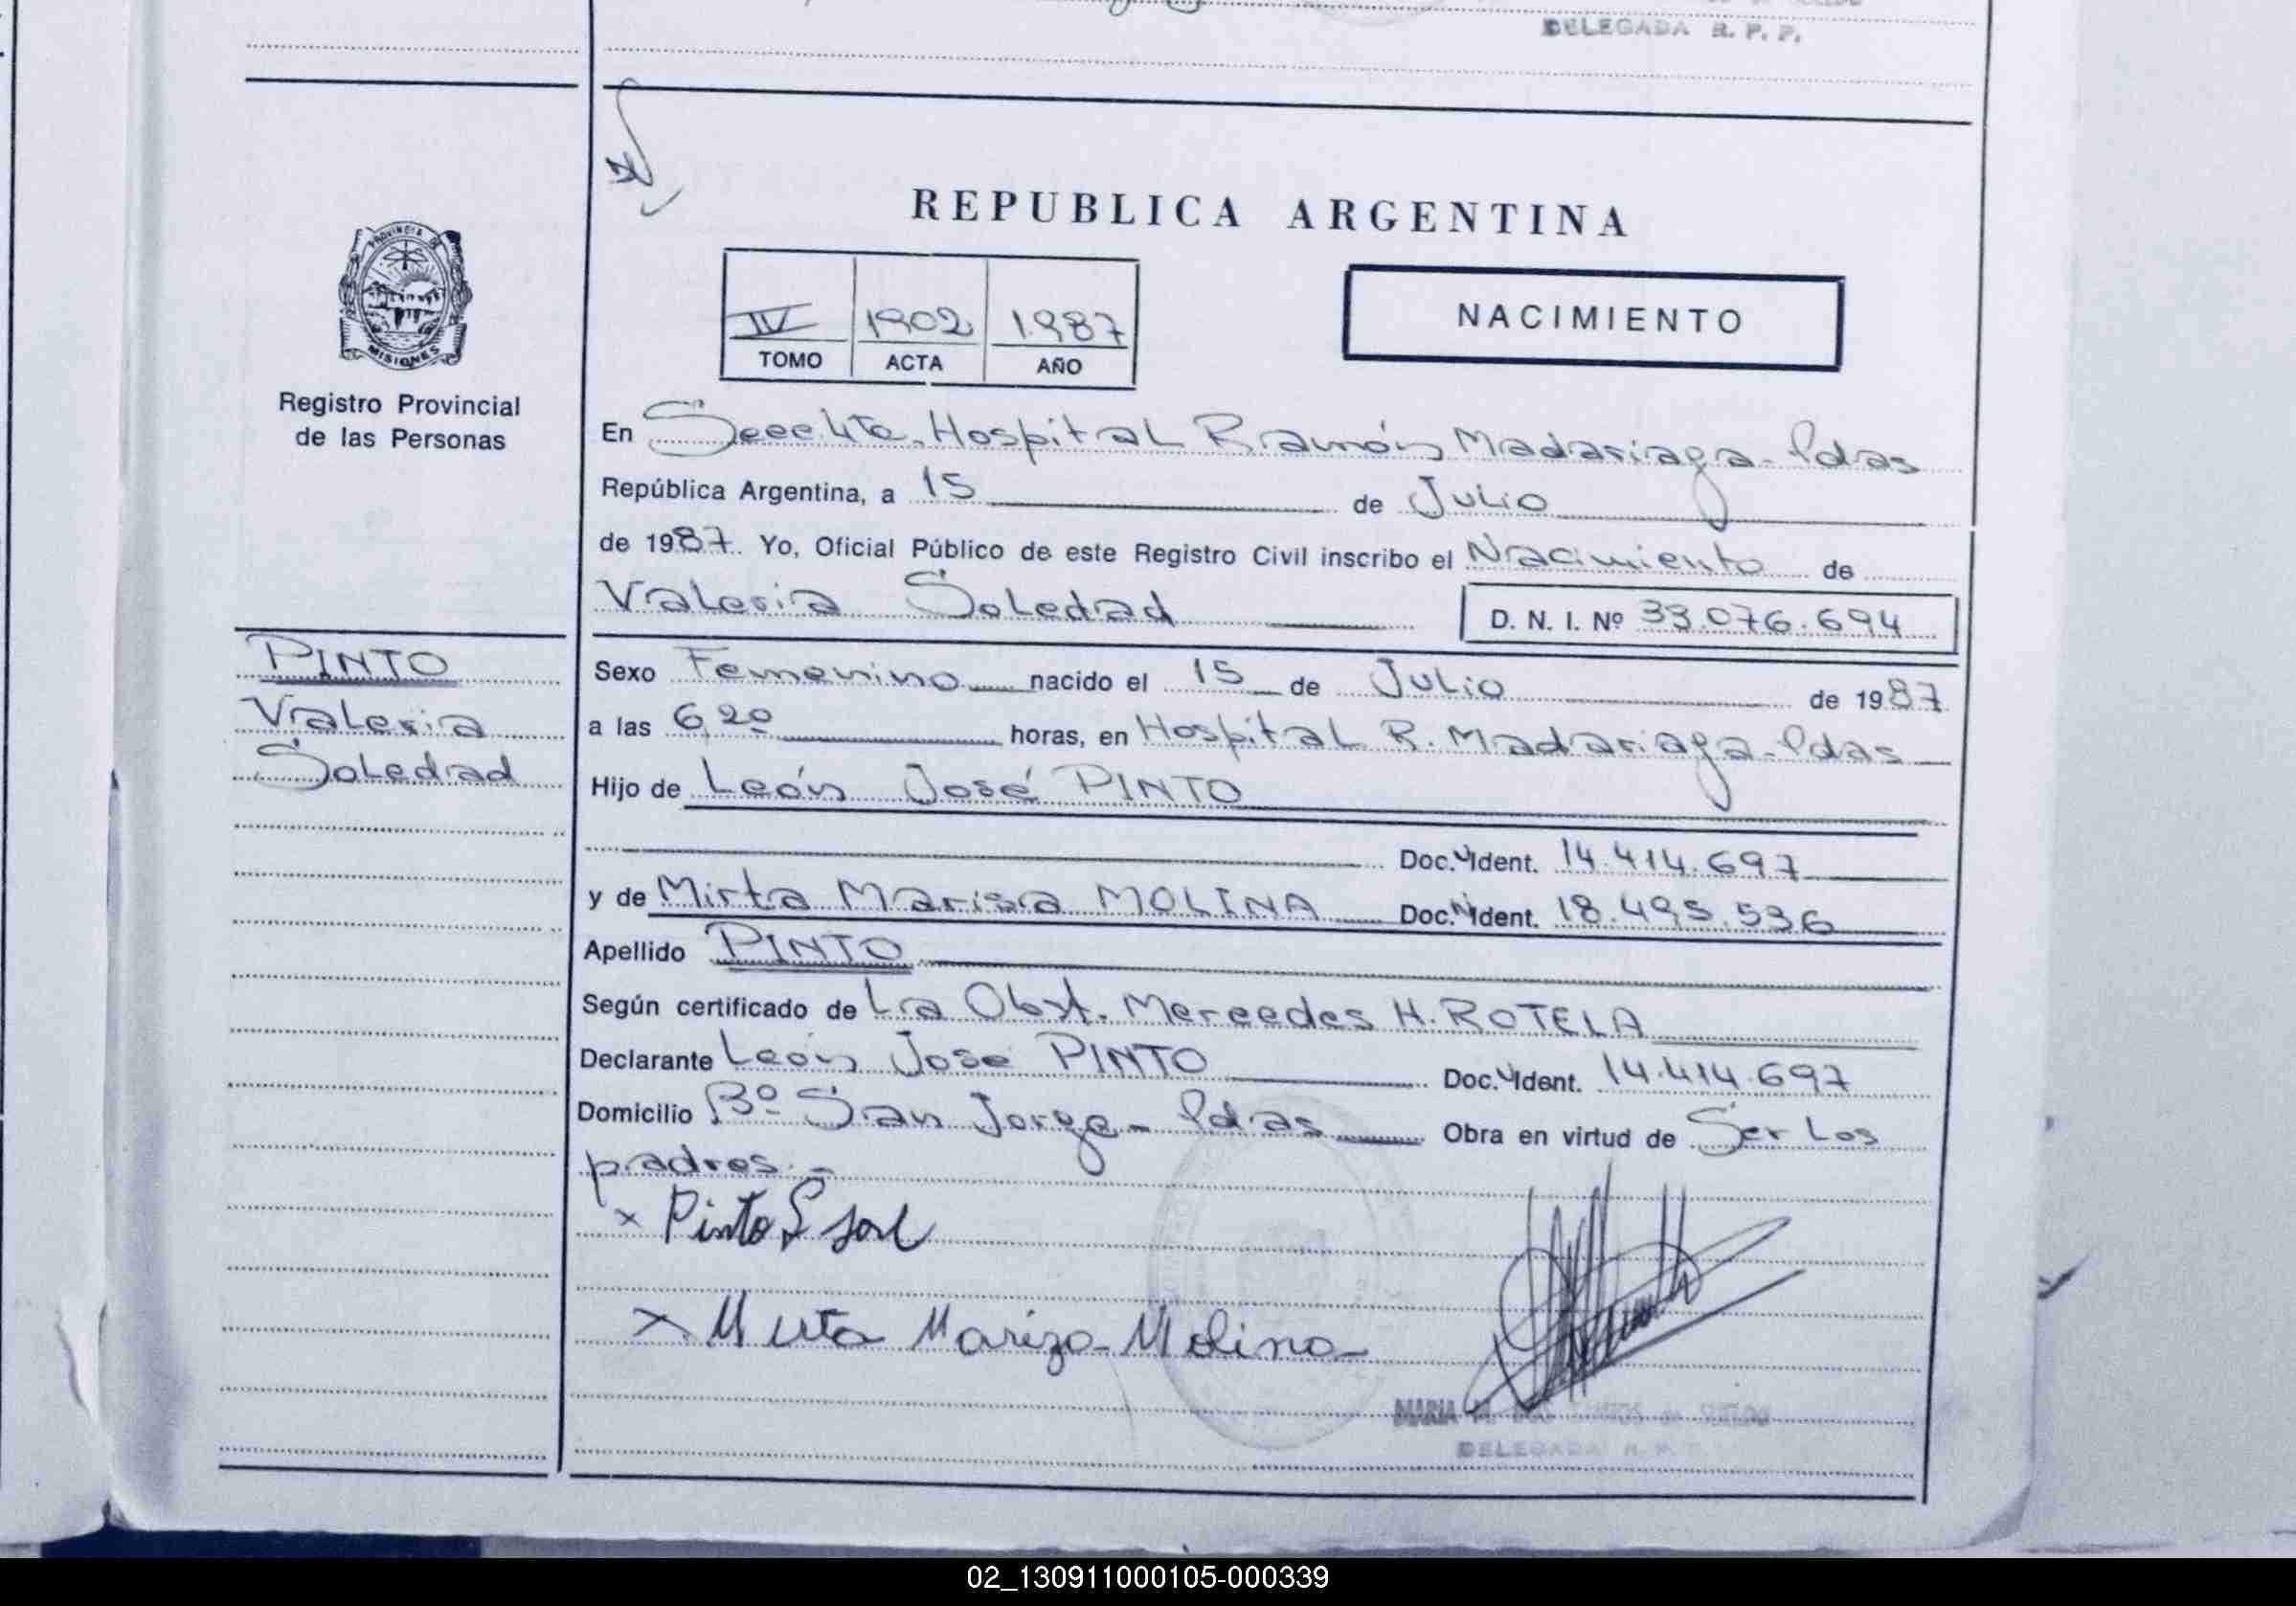 DELEGADA R. P. P.
REPUBLICA ARGENTINA
PROVINCIA DE
MISIONES
Registro Provincial
de las Personas
IV 1902 1987
TOMO ACTA AÑO
NACIMIENTO
En Secc. 4ta. Hospital Ramón Madariaga - Pdas
República Argentina, a 15 de Julio
de 1987. Yo, Oficial Público de este Registro Civil inscribo el Nacimiento de
Valeria Soledad D. N. I. Nº 33.076.694
PINTO
Valeria
Soledad
Sexo Femenino nacido el 15 de Julio de 1987
a las 6,20 horas, en Hospital R. Madariaga - Pdas
Hijo de León José PINTO
Doc. Ident. 14.414.697
y de Mirta Marisa MOLINA Doc. Ident. 18.495.536
Apellido PINTO
Según certificado de La Obst. Mercedes H. ROTELA
Declarante León José PINTO Doc. Ident. 14.414.697
Domicilio Bº San Jorge - Pdas Obra en virtud de Ser Los
padres.-
x Pinto L José
x Mirta Mariza Molina
MARIA
DELEGADA R. P. P.
02_130911000105-000339